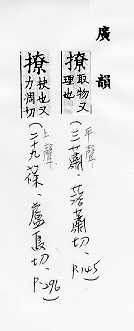 廣韻
撩取物又理也
平聲
(三蕭、落蕭切、P.145)
撩扶也又力凋切
上聲
(二十九篠、盧鳥切、P.296)